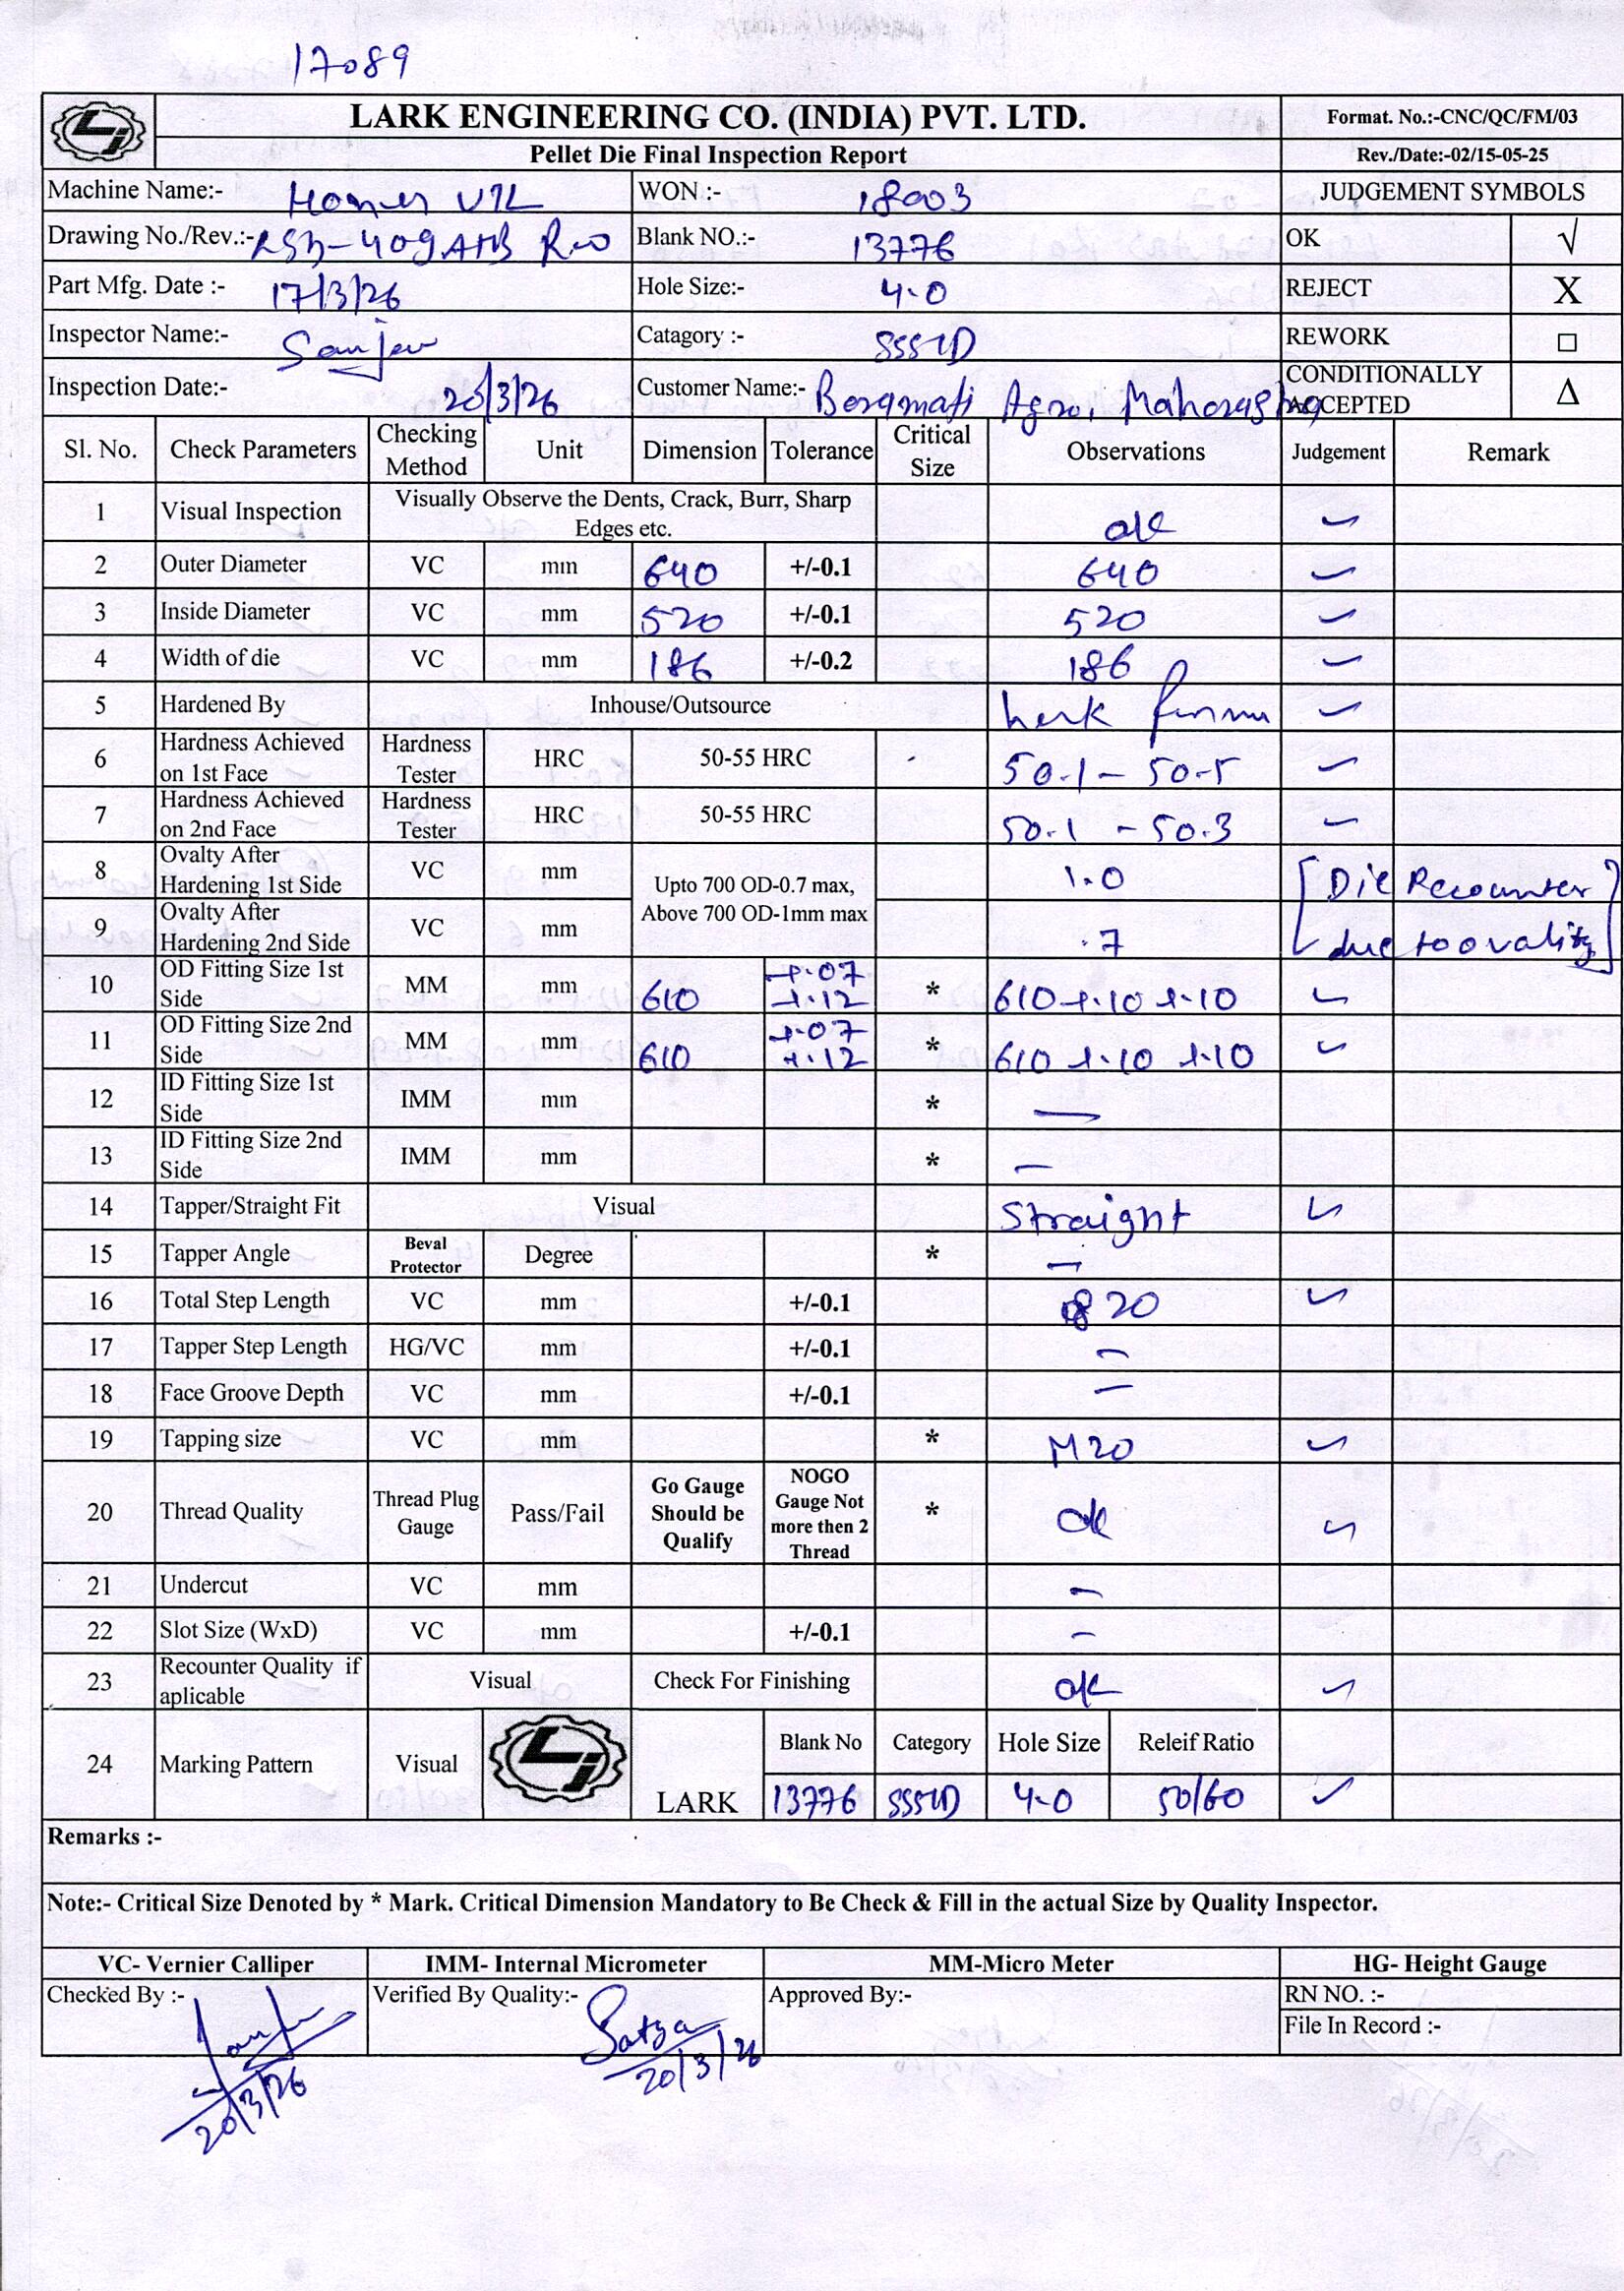 17089
LARK ENGINEERING CO. (INDIA) PVT. LTD.
Format. No.:-CNC/QC/FM/03
Pellet Die Final Inspection Report
Rev./Date:-02/15-05-25
Machine Name:- VTL WON :- 18003 JUDGEMENT SYMBOLS
Drawing No./Rev.:- Blank NO.:- 13776 OK √
Part Mfg. Date :- 17/3/26 Hole Size:- 4.0 REJECT X
Inspector Name:- Sanjeev Catagory :- REWORK □
Inspection Date:- 20/3/26 Customer Name:- Baramati Agro, Maharashtra CONDITIONALLY ACCEPTED Δ
Sl. No. Check Parameters Checking Method Unit Dimension Tolerance Critical Size Observations Judgement Remark
1 Visual Inspection Visually Observe the Dents, Crack, Burr, Sharp Edges etc. ok ✓
2 Outer Diameter VC mm 640 +/-0.1 640 ✓
3 Inside Diameter VC mm 520 +/-0.1 520 ✓
4 Width of die VC mm 186 +/-0.2 186 ✓
5 Hardened By Inhouse/Outsource ✓
6 Hardness Achieved on 1st Face Hardness Tester HRC 50-55 HRC 50.1 - 50.5 ✓
7 Hardness Achieved on 2nd Face Hardness Tester HRC 50-55 HRC 50.1 - 50.3 ✓
8 Ovalty After Hardening 1st Side VC mm Upto 700 OD-0.7 max, Above 700 OD-1mm max 1.0 [Die Recounter
9 Ovalty After Hardening 2nd Side VC mm .7 due to ovality]
10 OD Fitting Size 1st Side MM mm 610 +.07 +.12 * 610 +.10 +.10 ✓
11 OD Fitting Size 2nd Side MM mm 610 +.07 +.12 * 610 +.10 +.10 ✓
12 ID Fitting Size 1st Side IMM mm * —
13 ID Fitting Size 2nd Side IMM mm * —
14 Tapper/Straight Fit Visual Straight ✓
15 Tapper Angle Beval Protector Degree * —
16 Total Step Length VC mm +/-0.1 20 ✓
17 Tapper Step Length HG/VC mm +/-0.1 —
18 Face Groove Depth VC mm +/-0.1 —
19 Tapping size VC mm * M20 ✓
20 Thread Quality Thread Plug Gauge Pass/Fail Go Gauge Should be Qualify NOGO Gauge Not more then 2 Thread * ok ✓
21 Undercut VC mm —
22 Slot Size (WxD) VC mm +/-0.1 —
23 Recounter Quality if aplicable Visual Check For Finishing ok ✓
24 Marking Pattern Visual LARK Blank No Category Hole Size Releif Ratio
13776 4.0 50/60 ✓
Remarks :-
Note:- Critical Size Denoted by * Mark. Critical Dimension Mandatory to Be Check & Fill in the actual Size by Quality Inspector.
VC- Vernier Calliper IMM- Internal Micrometer MM-Micro Meter HG- Height Gauge
Checked By :- Verified By Quality:- Satya Approved By:- RN NO. :-
File In Record :-
20/3/26 20/3/26